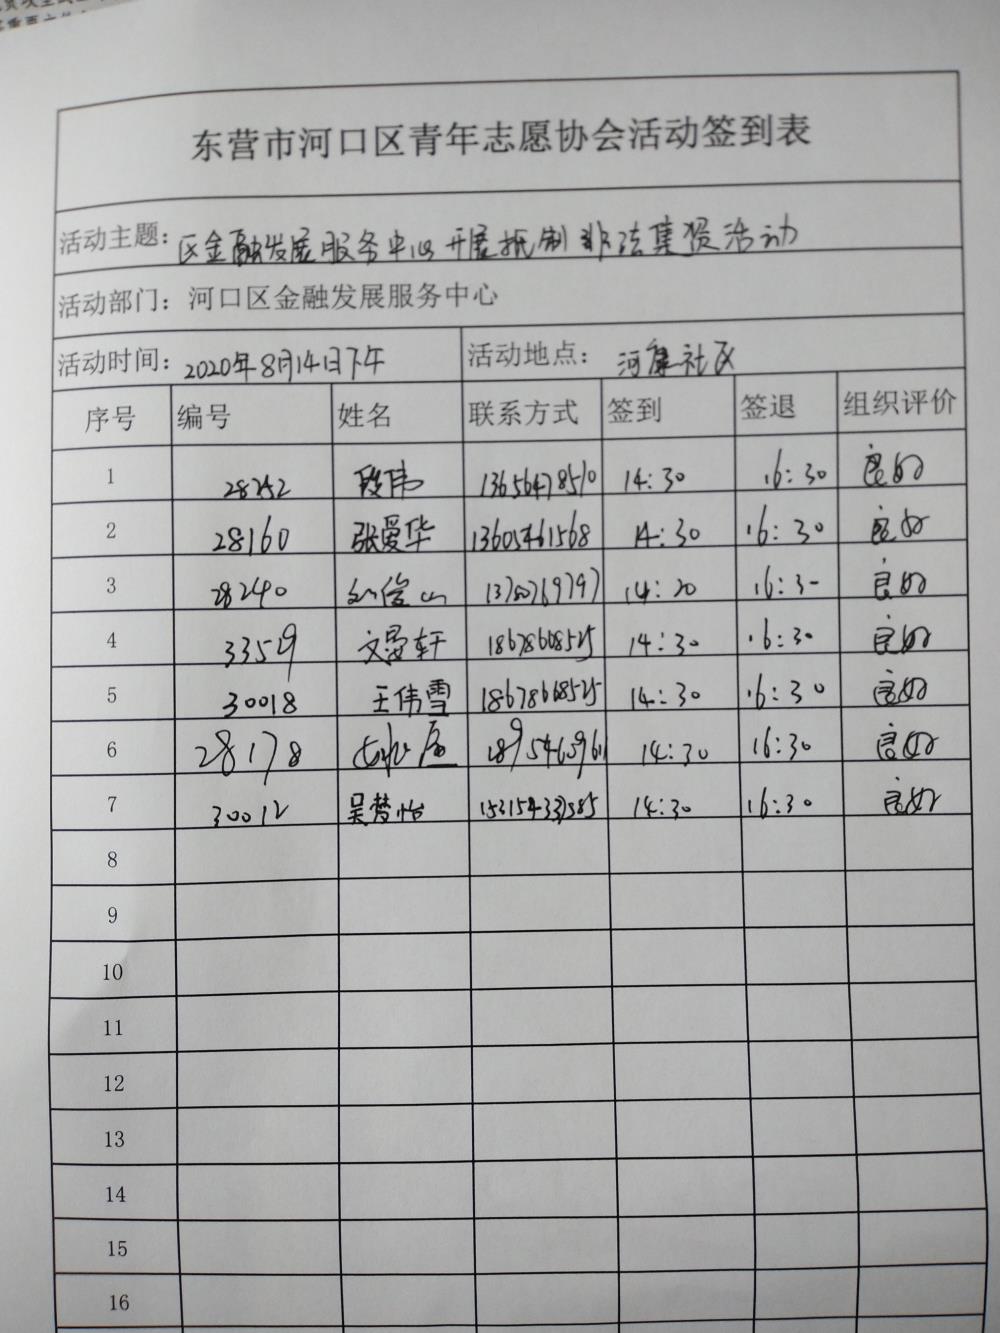 东营市河口区青年志愿协会活动签到表
活动主题：区金融发展服务中心开展抵制非法集资活动
活动部门：河口区金融发展服务中心
活动时间：2020年8月14日下午 活动地点：河康社区
序号 编号 姓名 联系方式 签到 签退 组织评价
1 28252 段伟 13656478510 14:30 16:30 良好
2 28160 张爱华 13605461568 14:30 16:30 良好
3 28240 刘俊山 14:20 16:30 良好
4 33559 文曼轩 18678608525 14:30 16:30 良好
5 30018 王伟雪 18678668525 14:30 16:30 良好
6 28178 14:30 16:30 良好
7 30012 吴梦怡 14:30 16:30 良好
8
9
10
11
12
13
14
15
16